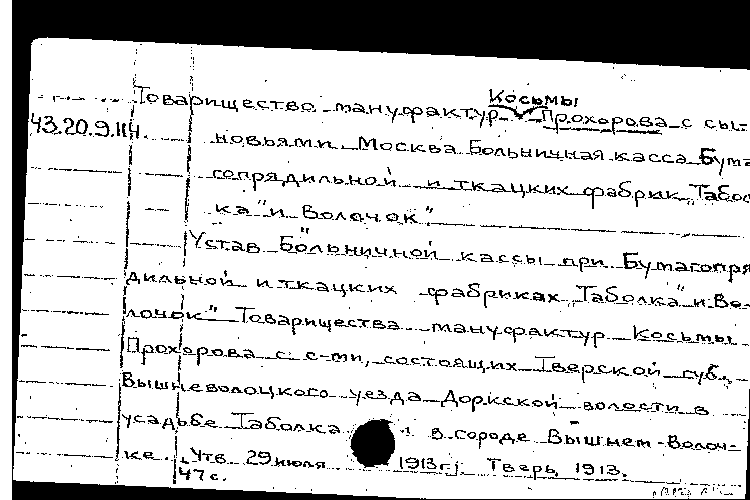 Косьмы
Товарищество мануфактур Прохорова с сы-
43.20.9.114. новьями. Москва. Больничная касса Бума
гопрядильной и ткацких фабрик „Табол
ка" и Волочок".
Устав Больничной кассы при Бумагопря
дильной и ткацких фабриках „Таболка" и Во-
лочок" Товарищества мануфактур Косьмы
Прохорова с с-ми, состоящих Тверской губ.,
Вышневолоцкого уезда Доркской волости в
усадьбе Таболка и в городе Вышнем-Волоч-
ке. „Утв. 29 июля 1913 г." Тверь, 1913.
47 с.